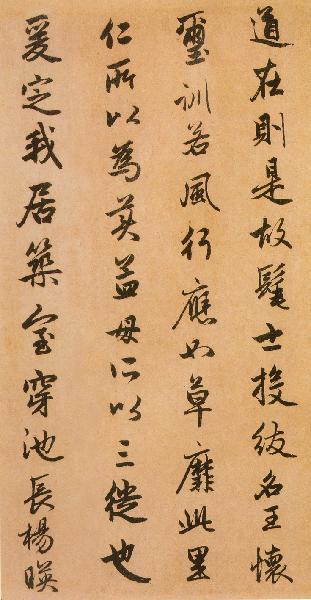 道在則是故髦士投紱名王懷
璽訓若風行應如草靡此里
仁所以為美孟母所以三徙也
爰定我居築室穿池長楊暎